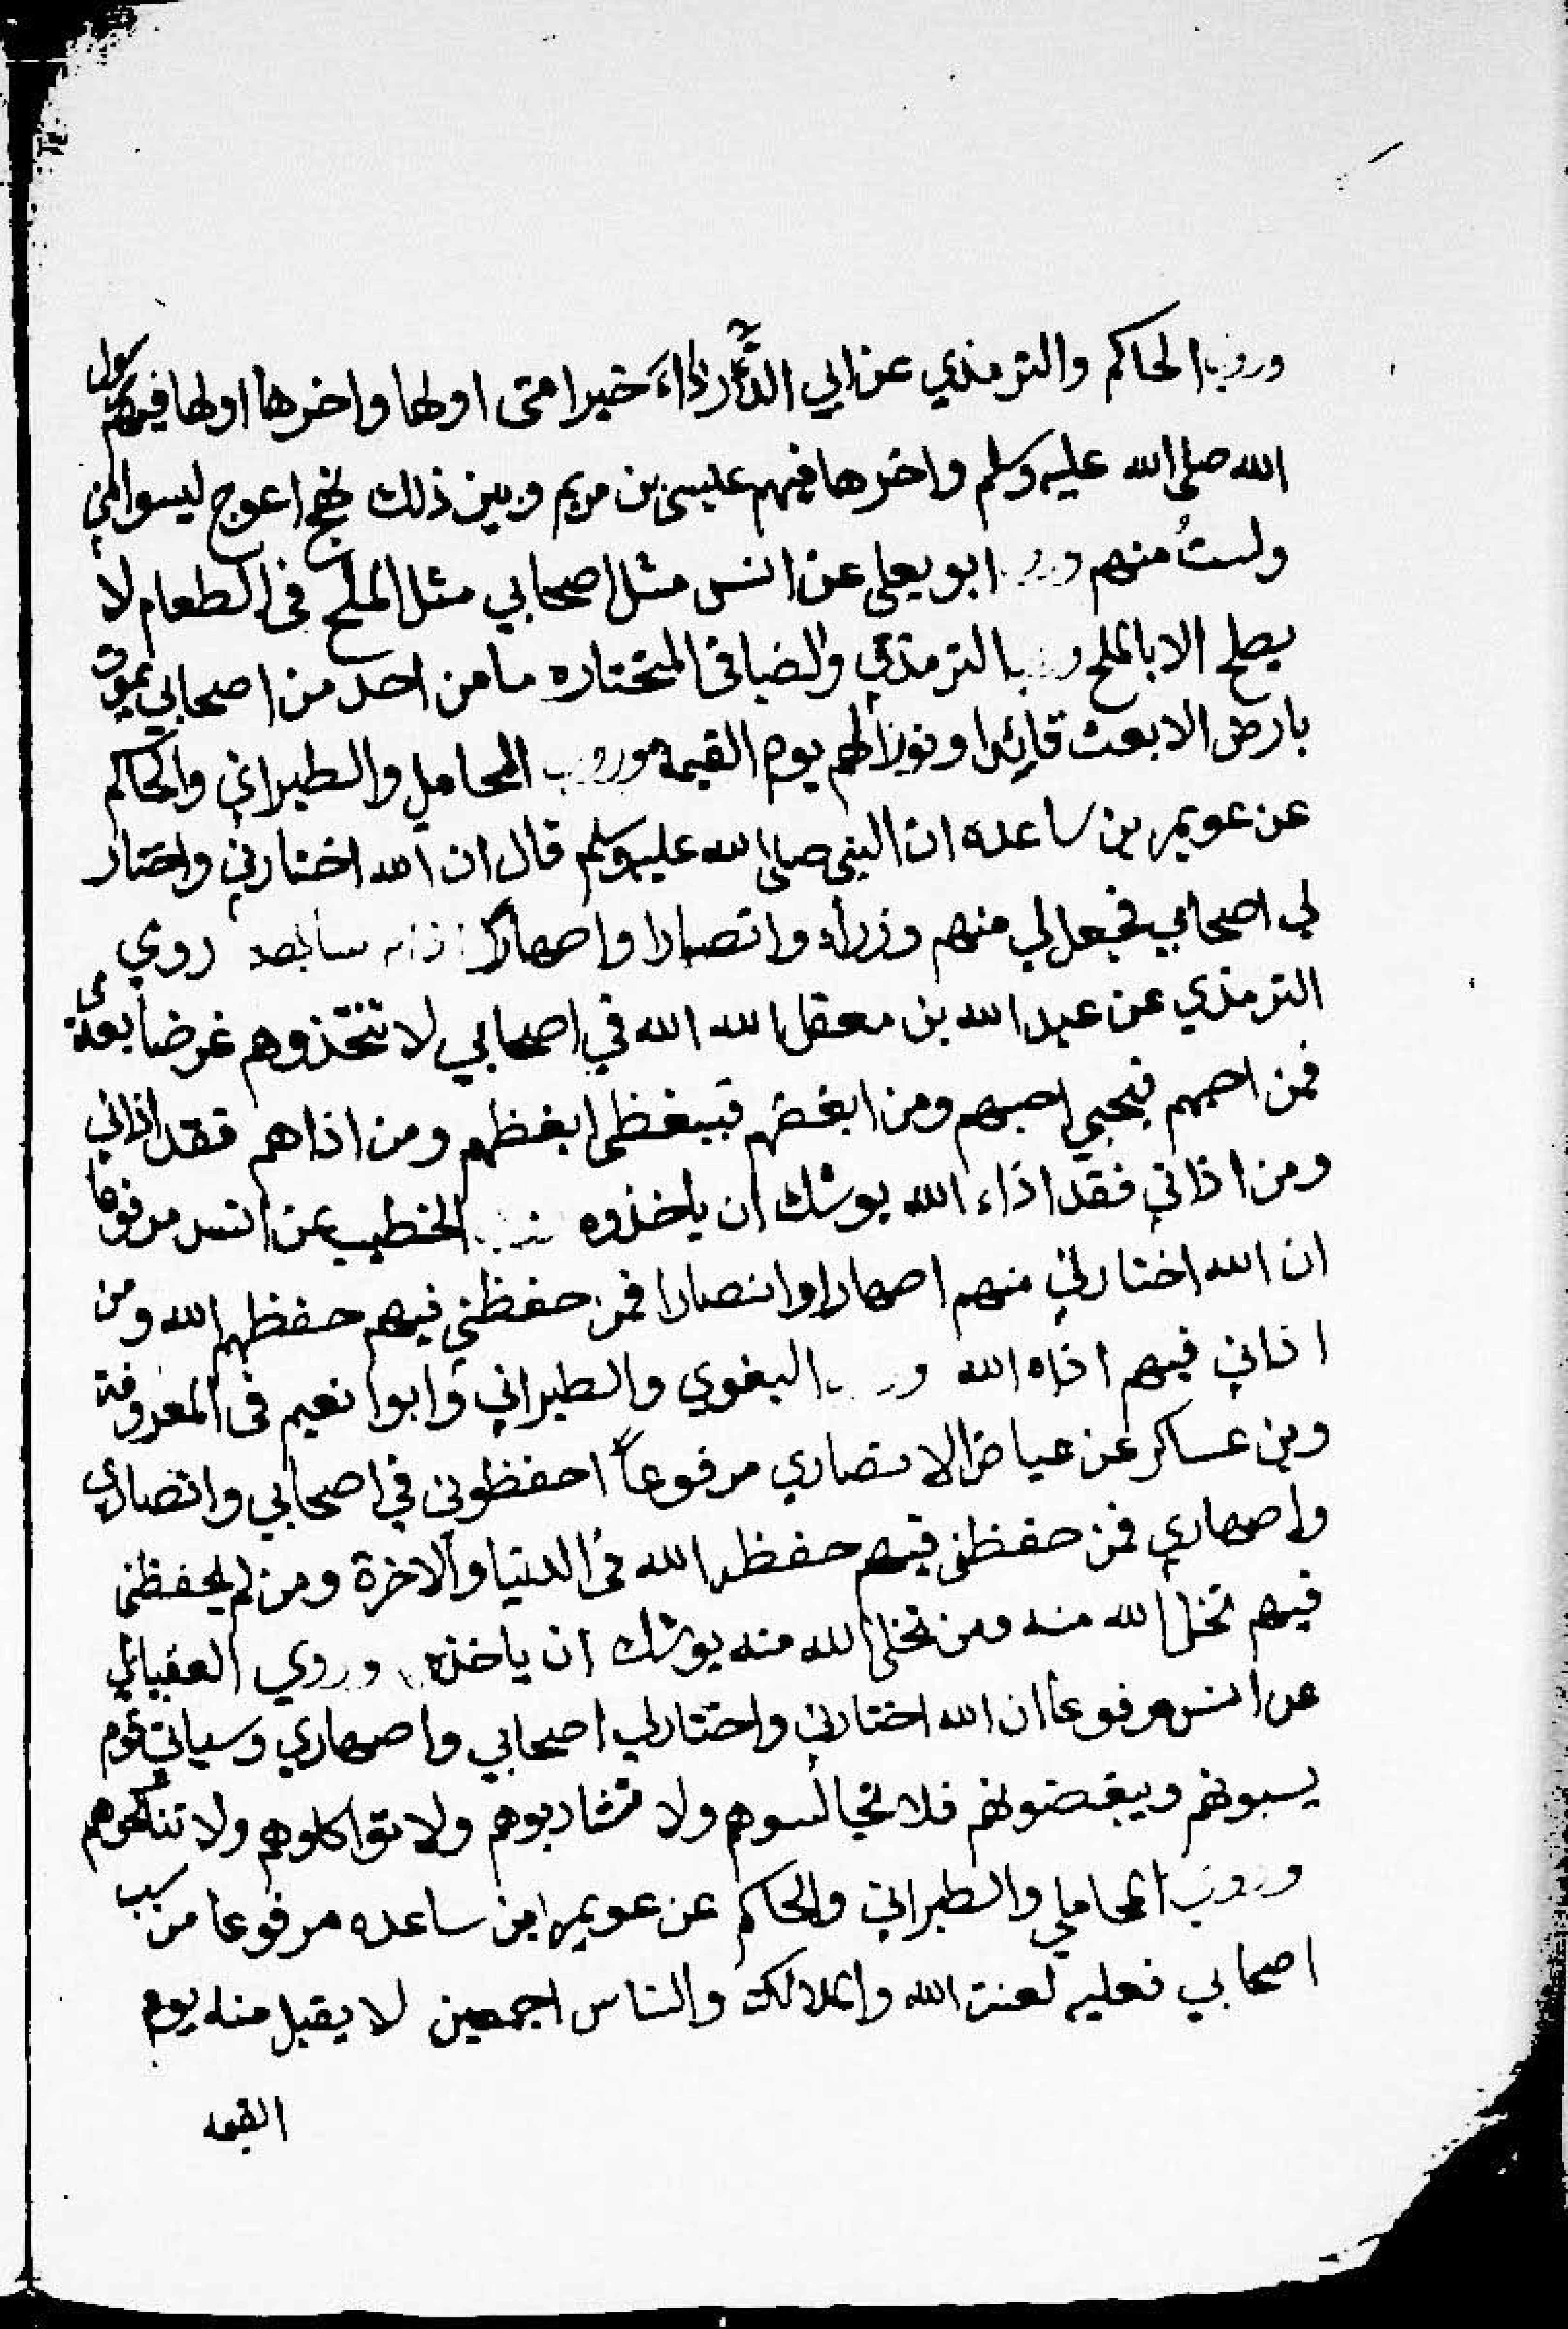 وروي الحاكم والترمذي عن ابي الدرداء خير امتى اولها واخرها اولها فيهم رسول
الله صلى الله عليه وسلم واخرها فيهم عيسى بن مريم وبين ذلك نهج اعوج ليسوا مني
ولستُ منهم ابو يعلى عن انس مثل اصحابي مثل الملح فى الطعام لا
يصلح الا بالملح الترمذي والضيا فى المختاره ما من احد من اصحابي يموت
بارض الا بعث قائدا ونورا لهم يوم القيمة وروي المحاملي والطبراني والحاكم
عن عويمر بن ساعده ان النبى صلى الله عليه وسلم قال ان الله اختارني واختار
لي اصحابي فجعل لي منهم وزراء وانصارا واصهارا روي
الترمذي عن عبد الله بن معقل الله الله في اصحابي لا تتخذوهم غرضا بعدى
فمن احبهم فبحبي احبهم ومن ابغضهم فببغظى ابغظهم ومن اذاهم فقد اذاني
ومن اذاني فقد اذاء الله يوشك ان ياخذوه الخطيب عن انس مرفوعا
ان الله اختارني منهم اصهارا وانصارا فمن حفظني فيهم حفظهم الله ومن
اذاني فيهم اذاه الله البغوي والطبراني وابوا نعيم فى المعروفة
وبن عساكر عن عياض الانصاري مرفوعاً احفظونى في اصحابي وانصاري
واصهاري فمن حفظنى فيهم حفظه الله فى الدنيا والاخرة ومن لم يحفظنى
فيهم تخلى الله منه ومن تخلى الله منه يوشك ان ياخذه وروي العقيلي
عن انس مرفوعا ان الله اختارني واختار لي اصحابي واصهاري وسياتي قوم
يسبونهم ويبغضونهم فلا تجالسوهم ولا تشاربوهم ولا تواكلوهم ولا تنكحوهم
وروي المحاملي والطبراني والحاكم عن عويمر ابن ساعده مرفوعا من سب
اصحابي فعليه لعنت الله والملائكة والناس اجمعين لا يقبل منه يوم
القيمه